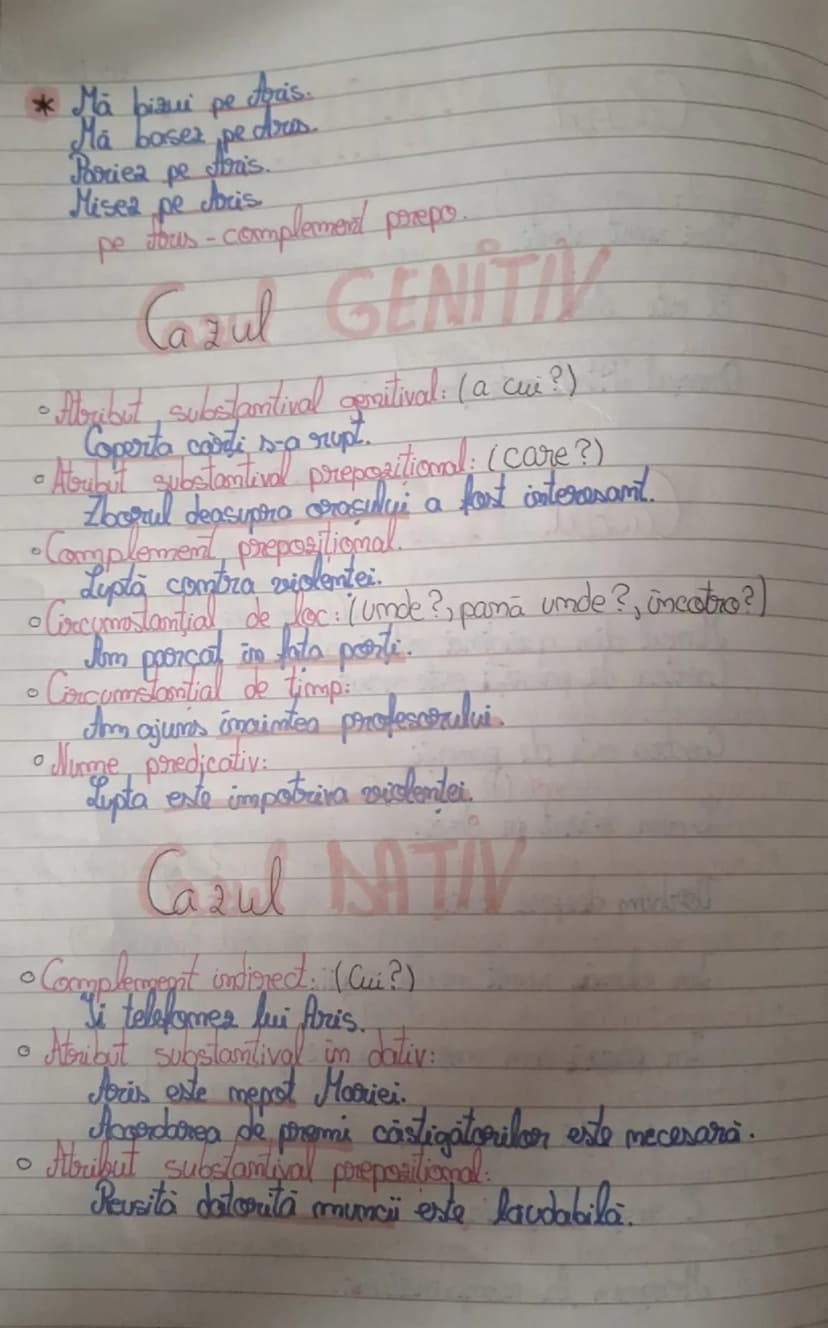 * Mă bizui pe Aris.
Mă bazez pe Aris.
Pariez pe Aris.
Mizez pe Aris
pe Aris - complement prepo.
Cazul GENITIV
○ Atribut substantival genitival: (a cui?)
Coperta cărții s-a rupt.
○ Atribut substantival prepozițional: (care?)
Zborul deasupra orașului a fost interesant.
○ Complement prepozițional.
Luptă contra violenței.
○ Circumstanțial de loc: (unde?, pană unde?, încotro?)
Am parcat în fața porții.
○ Circumstanțial de timp:
Am ajuns înaintea profesorului.
○ Nume predicativ:
Lupta este impotriva violenței.
Cazul DATIV
○ Complement indirect: (Cui?)
Îi telefonez lui Aris.
○ Atribut substantival în dativ:
Aris este nepot Mariei.
Acordarea de premii câstigătorilor este necesară.
○ Atribut substantival prepozițional:
Reusita datorită muncii este laudabilă.